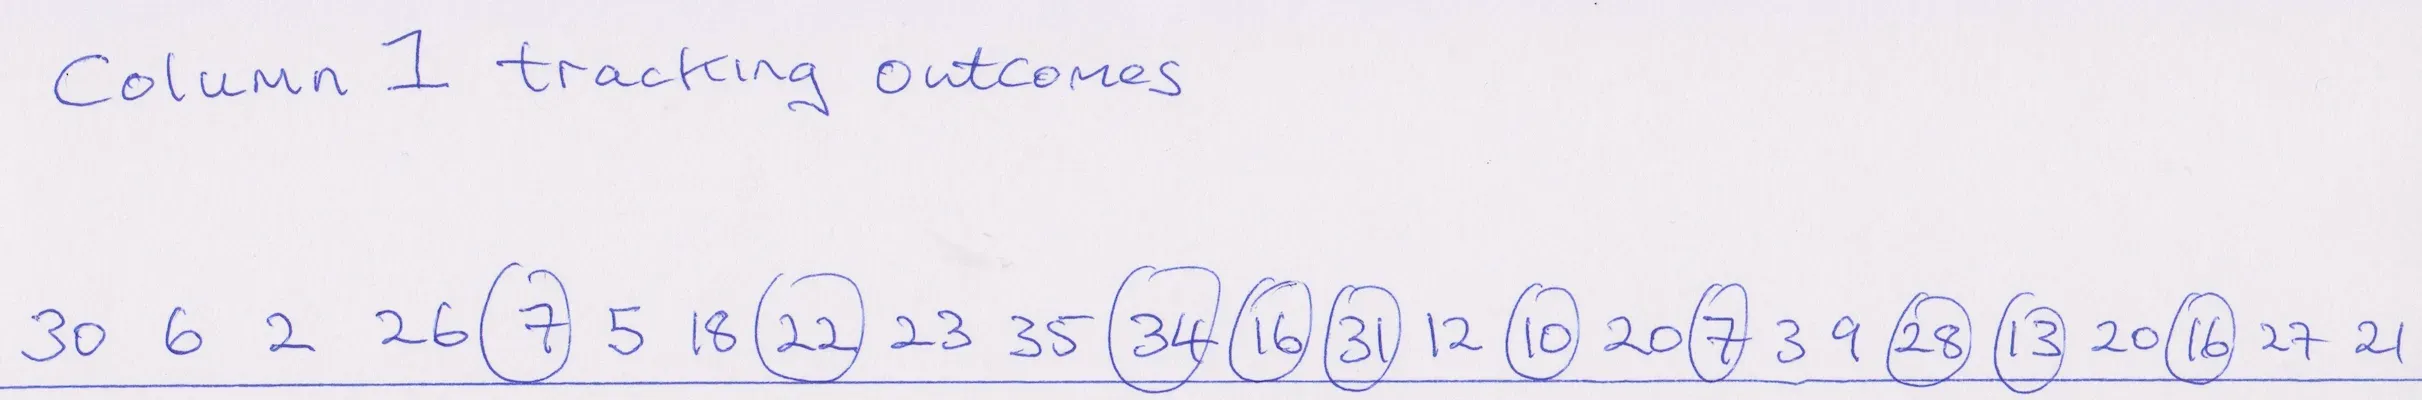 Column 1 tracking outcomes
30 6 2 26 7 5 18 22 23 35 34 16 31 12 10 20 7 3 9 28 13 20 16 27 21